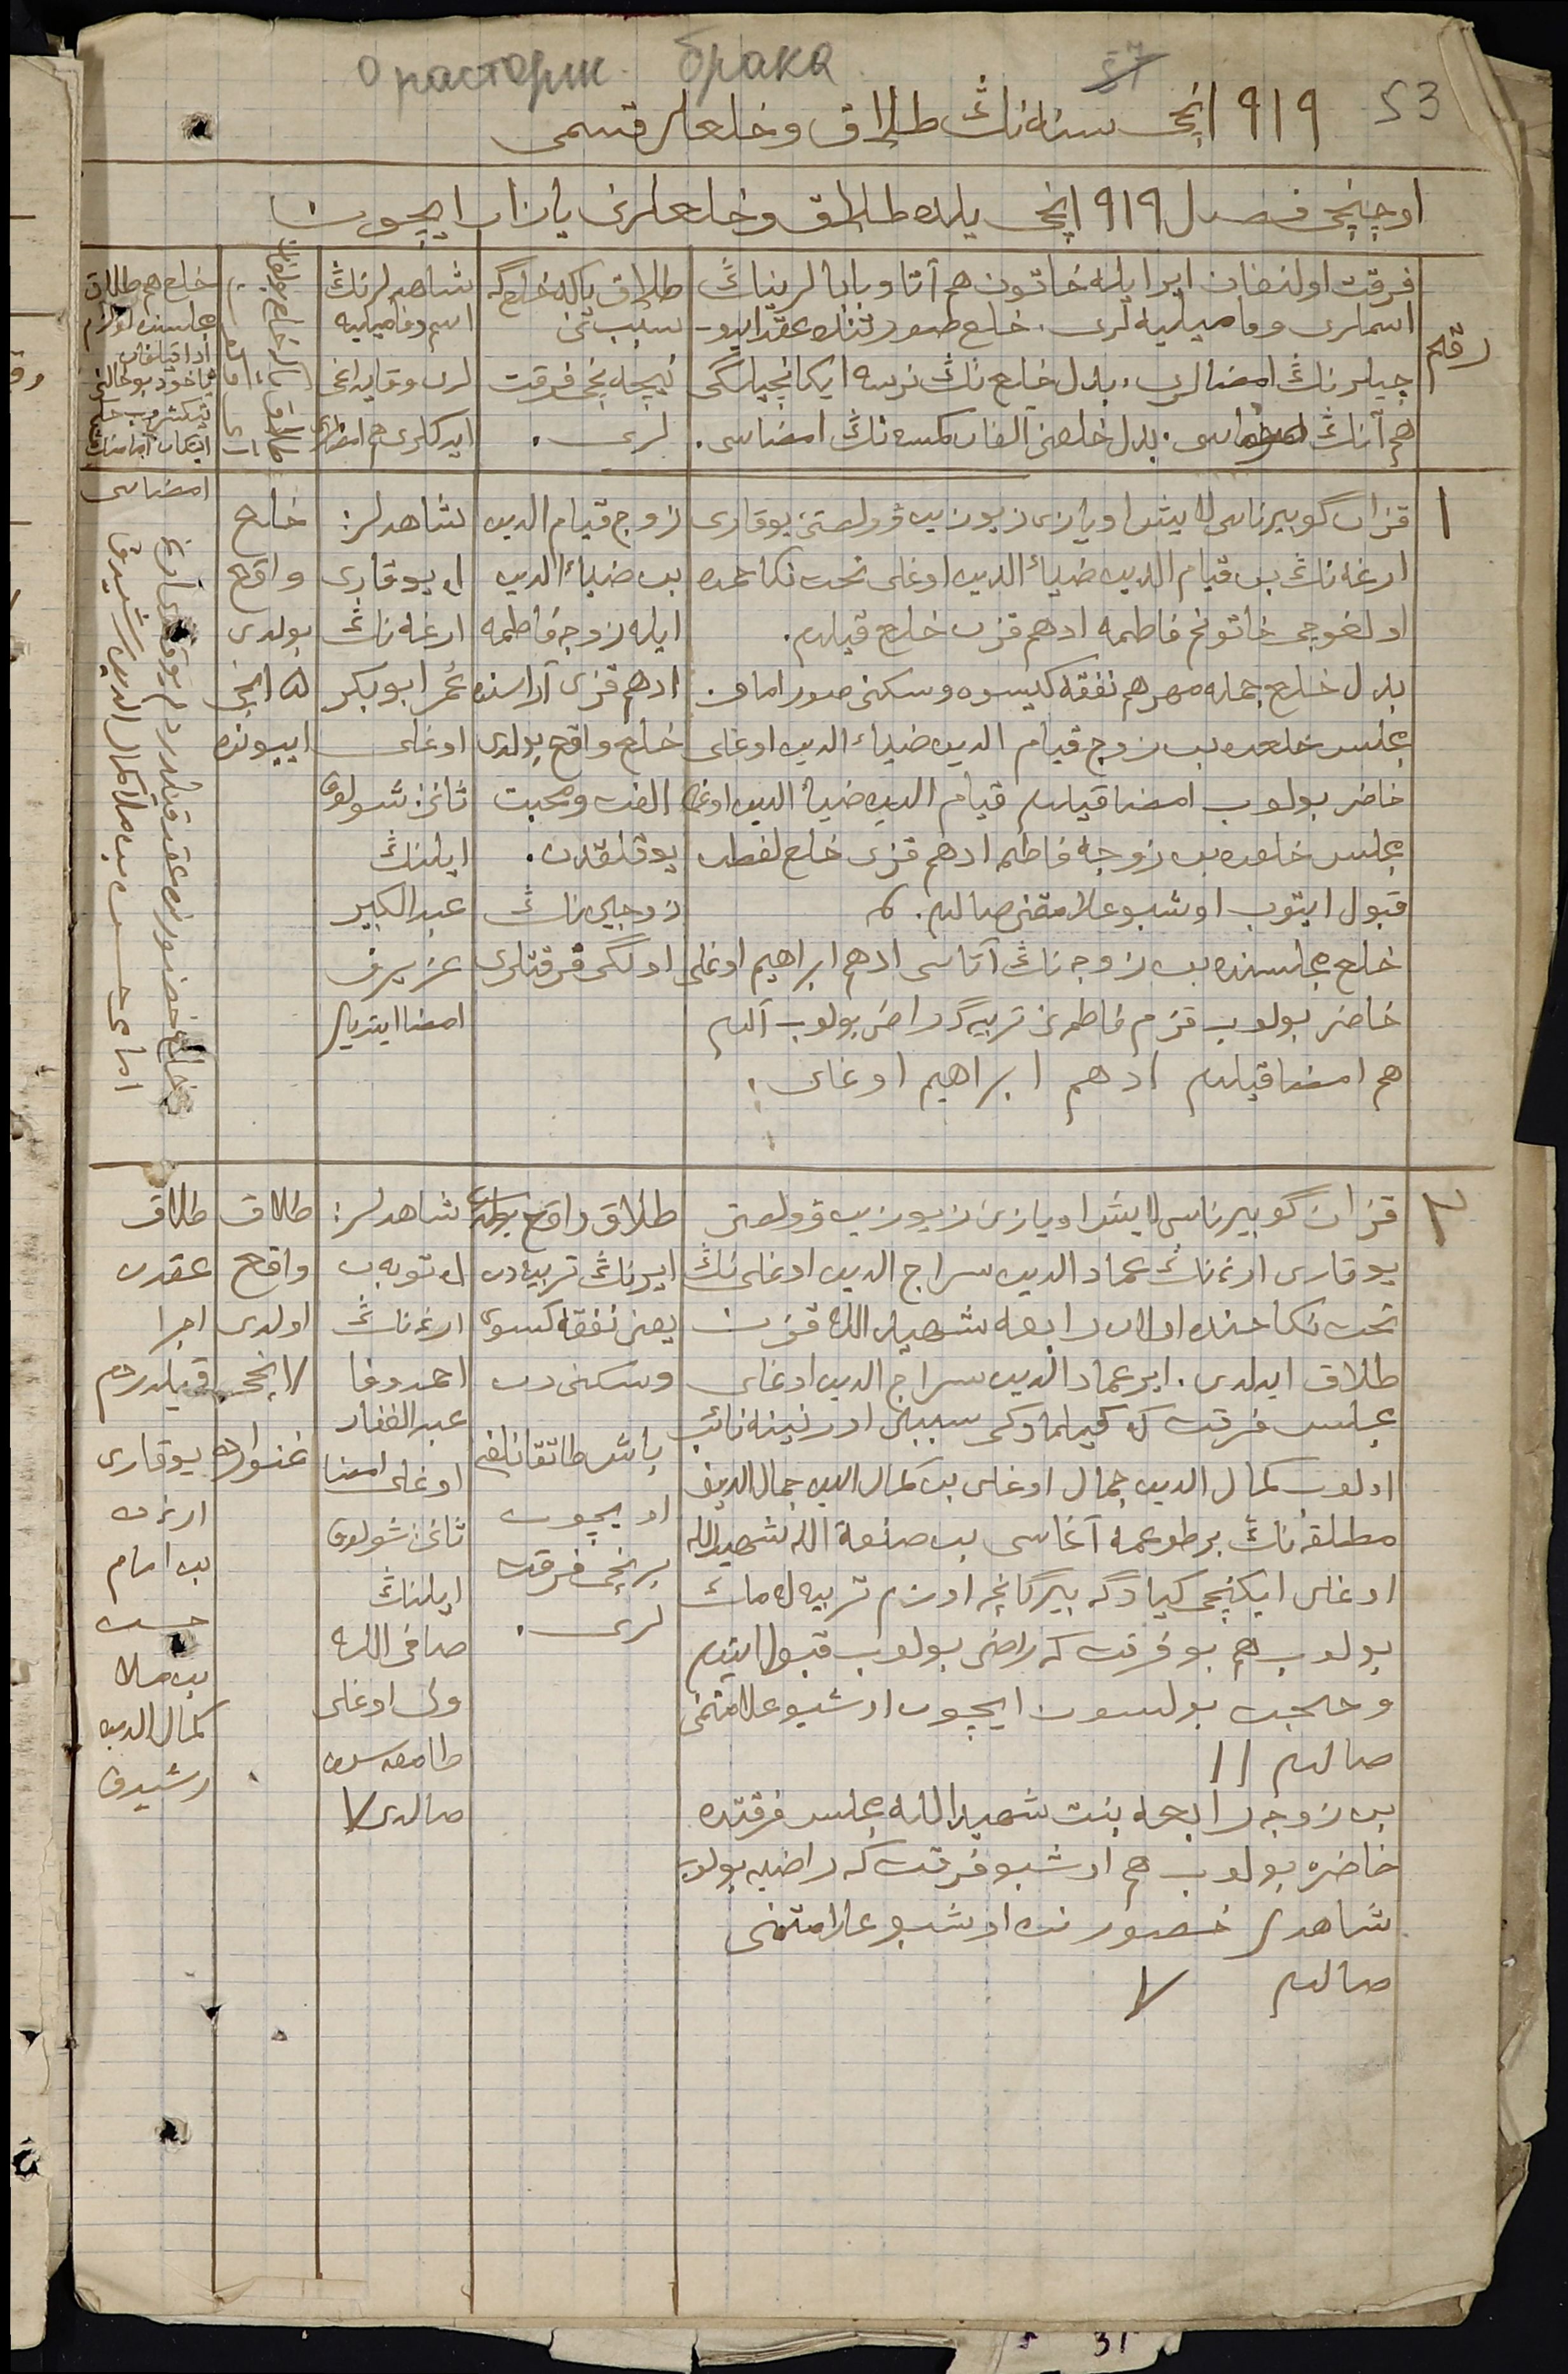 О расторж. брака
53
۹۱۹ انچی سنه‌نڭ طلاق و خلعلر قسمی
اوچنچی فصل ۹۱۹ انچی یلده طلاق و خلعلرنی یازار ایچون
رقم
فرقت اولنغان ایر ایله خاتون هم آتا و بابالرینڭ
اسملری و فامیلیه‌لری. خلع صورتنده عقد ایدو-
چیلرنڭ امضالری، بدل خلع نڭ نرسه ایکانچیلگی
هم آنڭ امضاسی. بدل خلعنی آلغان کمسه نڭ امضاسی.
طلاق یاکه خلع گه
سبب نی
نیچه نچی فرقت
لری.
شاهدلرنڭ
اسم و فامیلیه
لری و قایداغی
ایرکلری هم امضالری
خلع هم طلاق
مجلسنده لوازم
ادا قیلغان
امضاسی
۱
قزان گوبیرناسی لایش اویازی زیوزین ڤولصتی یوقاری
ارغه نڭ بن قیام الدین ضیاء الدین اوغلی تحت نکاحمده
اولغوچی خاتونم فاطمه ادهم قزن خلع قیلدم.
بدل خلع جمله مهر هم نفقه کیسوه و سکنی صورامام.
مجلس خلعده بن زوج قیام الدین ضیاء الدین اوغلی
حاضر بولوب امضا قیلدم قیام الدین ضیا الدین اوغلی
مجلس خلعده بن زوجه فاطمه ادهم قزی خلع لفظن
قبول ایتوب اوشبو علامتمنی صالدم.
خلع مجلسنده بن زوجه نڭ آتاسی ادهم ابراهیم اوغلی
حاضر بولوب قزم فاطمه نی تربیه گه راضی بولوب آلدم
هم امضا قیلدم ادهم ابراهیم اوغلی.
زوج قیام الدین
بن ضیاء الدین
ایله زوجه فاطمه
ادهم قزی آراسنده
خلع واقع بولدی
الفت و محبت
یوقلقدن.
زوجین نڭ
اولگی فرقتلری
شاهدلر:
۱، یوقاری
ارغه نڭ
عمر ابوبکر
اوغلی
ثانی: شولوق
ایلنڭ
عبدالکبیر
عزیزف
امضا ایتدیلر
خلع
واقع
بولدی
۱۵ انچی
اییونده
خلع حضورنده عقد قیلدردم یوقاری ارغه
امامی حسن بن ملا کمال الدین رشیدف
۲
قزان گوبیرناسی لایش اویازی زیوزین ڤولصتی
یوقاری ارغه نڭ عماد الدین سراج الدین اوغلی نڭ
تحت نکاحنده اولان رابعه شهید الله قزن
طلاق ایدلدی. ایر عماد الدین سراج الدین اوغلی
مجلس فرقت که کیلمادکی سببلی اورنینه نائب
اولوب کمال الدین جمال اوغلی بن کمال الدین جمال الدینف
مطلقه نڭ بر طوغمه آغاسی بن صنعة الله شهید الله
اوغلی ایکنچی کیاوگه بیرگانچه اوزم تربیه له مک
بولوب هم بو فرقت که راضی بولوب قبول ایتدم
و حجت بولسون ایچون اوشبو علامتمنی
صالدم //
بن زوجه رابعه بنت شهید الله مجلس فرقتده
حاضره بولوب هم اوشبو فرقت که راضیه بولوب
شاهدلر حضورنده اوشبو علامتمنی
صالدم
طلاق واقع بولدی
ایرنڭ تربیه دن
یعنی نفقه کسوه
و سکنی دن
اویچون
برنچی فرقت
لری.
شاهدلر:
۱، توبن
ارغه نڭ
احمد وفا
عبدالغفار
اوغلی امضا
ثانی: شولوق
ایلنڭ
صافی الله
ولی اوغلی
طامغه سن
صالدی
طلاق
واقع
اولدی
۷ انچی
غنوارده
طلاق
عقدن
اجرا
قیلدردم
یوقاری
ارغه
بن امام
حسن
بن ملا
کمال الدین
رشیدف
31